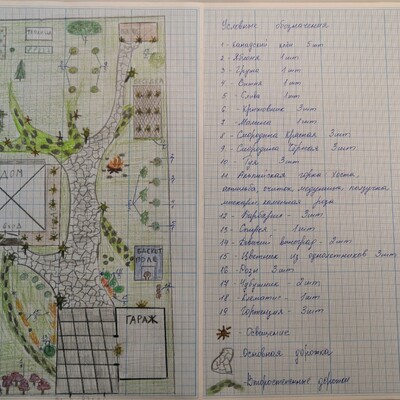 ТЕПЛИЦА
ДОМ
ВХОД
БАСКЕТ
ПОЛЕ
ГАРАЖ
Условные обозначения
1 - Канадский клён 5шт
2 - Яблоня 1шт
3 - Груша 1шт
4 - 1шт
5 - Слива 1шт
6 - Крыжовник 3шт
7 - Малина 1шт
8 - Смородина красная 3шт
9 - Смородина чёрная 3шт
10 - Туя 3шт
11 - хоста,
астильба,
12 - Барбарис - 3шт
13 - Спирея - 1шт
14 - Девичий виноград - 2шт
15 - Цветник из однолетников 3шт
16 - Розы 3шт
17 - Чубушник - 2шт
18 - Клематис - 1шт
19 - Гортензия - 3шт
- Освещение
- Основная дорожка
- дорожки